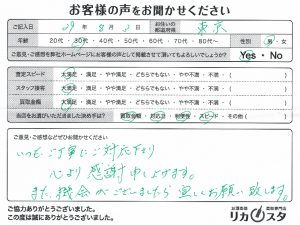 お客様の声をお聞かせください
ご記入日 29年 8月 2日 お住いの都道府県 東京
年齢 20代・30代・40代・50代・60代・70代・80代〜 性別 男・女
ご意見・ご感想を弊社ホームページにお客様の声として掲載させて頂いてもよろしいでしょうか? Yes・No
査定スピード 大満足・満足・やや満足・どちらでもない・やや不満・不満
スタッフ接客 大満足・満足・やや満足・どちらでもない・やや不満・不満
買取金額 大満足・満足・やや満足・どちらでもない・やや不満・不満
当店をお選びいただきました決め手は? 買取金額・対応力・利便性・スピード・その他( )
ご意見・ご感想などぜひお聞かせください
いつもご丁寧にご対応下さり
心より感謝申し上げます。
また、機会がございましたら宜しくお願い致します。
ご協力ありがとうございました。
この度は誠にありがとうございました。
お酒高価買取専門店
リカスタ